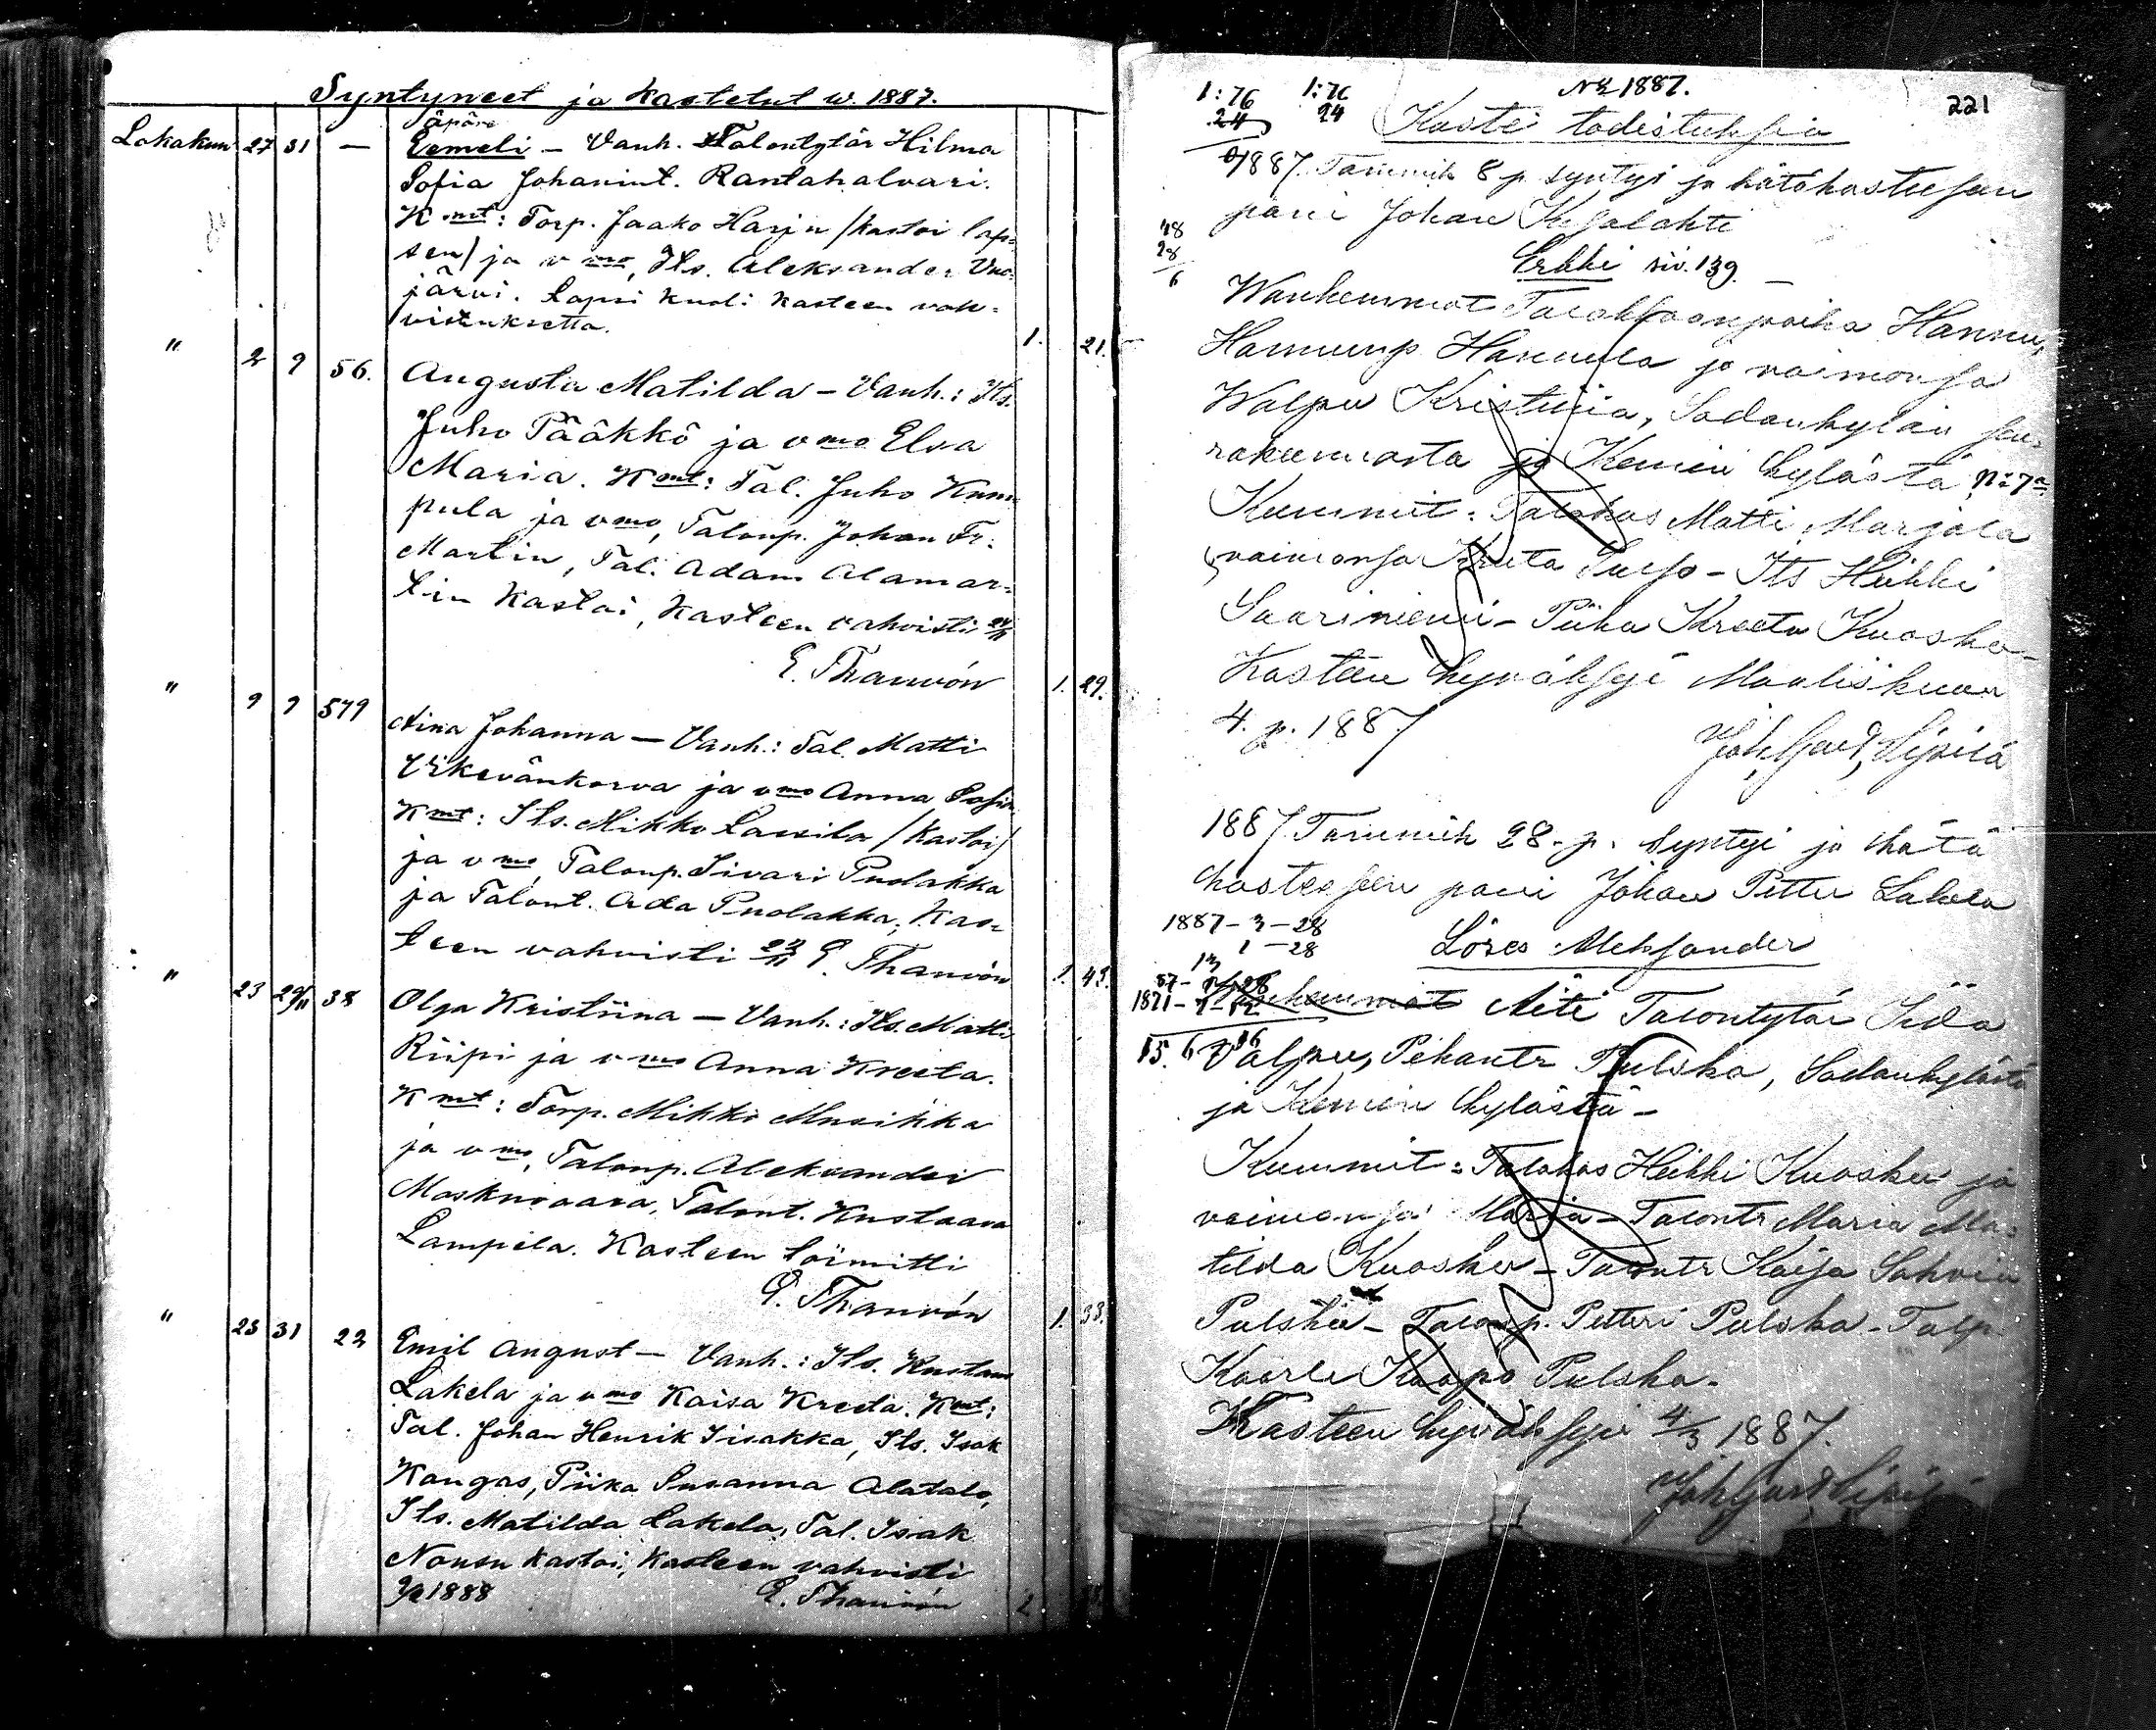 Syntyneet ja Kastetut w. 1887.
Äpärä
Lokakuu 27 31 — Eemeli – Vanh. Talontytär Hilma
Sofia Johanint. Rantahalvari.
Kmt: Torp. Jaako Harju /kastoi lap=
sen/ ja vmo, Its. Aleksander Vuo=
järvi. Lapsi kuoli kasteen vah=
vistuksetta. 1. 21.
" 2 9 56. Augusta Matilda – Vanh.: Its.
Juho Pääkkö ja vmo Elsa
Maria. Kmt: Tal. Juho Kum
pula ja vmo, Talonp. Johan Fr.
Martin, Tal. Adam Alamar=
tin Kastoi, Kasteen vahvisti
E. Thauvón 1. 29.
" 9 9 579 Aina Johanna — Vanh.: Tal. Matti
Ylikevänkorva ja vmo Anna Sofia
Kmt: Its. Mikko Lassila /Kastoi/
ja vmo, Talonp. Iivari Puolakka
ja Talont. Ada Puolakka; Kas=
teen vahvisti 23/11 E. Thauvón 1. 43.
" 23 29/11 38 Olga Kristiina — Vanh.: Its. Matti
Riipi ja vmo Anna Kreeta.
Kmt: Torp. Mikko Musikka
ja vmo, Talonp. Aleksander
Maskuvaara, Talont. Kustaava
Lampela. Kasteen toimitti
E. Thauvón 1. 33.
" 23 31 22 Emil August — Vanh.: Its. Kustaa
Lakela ja vmo Kaisa Kreeta. Kmt:
Tal. Johan Henrik Iisakka, Its. Isak
Kangas, Piika Susanna Alatalo,
Its. Matilda Lakela, Tal. Isak
Nousu kastoi; Kasteen vahvisti
1888 E. Thauvón 2
1:76 1:76 1887. 221
24 24 Kaste todistuksia
1887. Tammik 8 p syntyi ja hätäkasteesen
pani Johan Kesälahti
28
6
Erkki siv. 139.
Wanhemmat Talokkaanpoika Hannu,
Hannunp Hannula ja vaimonsa
Walpu Kristiina, Sodankylän seu=
rakunnasta ja Kemin kylästä,
Kummit: Talokas Matti Marjala
vaimonsa Kreeta – Its Heikki
Saariniemi – Piika Kreeta Kuosku –
Kasteen hyväksyi Maaliskuun
4. p. 1887.
1887. Tammik 28. p. syntyi ja hätä
kasteeseen pani Johan Petter Lakela
1887 – 3 – 28
1 – 28
Aleksander
Äiti Talontytär Iida
15. 6 16
Valpu, Pekantr Pulska, Sodankylästä
ja Kemin kylästä –
Kummit: Talokas Heikki Kuosku ja
vaimonsa Maria – Talontr Maria Ma=
tilda Kuosku – Talontr Kaija
Pulska – Talonp. Petteri Pulska – Talp
Kaarle Kaapo Pulska.
Kasteen hyväksyi 4/3 1887.